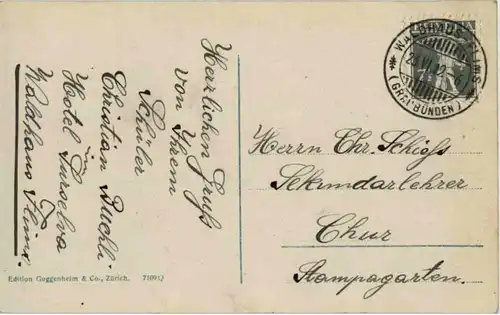 Herrlichen Gruss
von Ihrem
Schüler
Christian Buchli
Hotel Surselva
in
Waldhaus Flims.
WALDHAUS-FLIMS
(GRAUBÜNDEN)
Herrn Chr. Schiess
Sekundarlehrer
Chur
Stampagarten.
Edition Guggenheim & Co., Zürich.